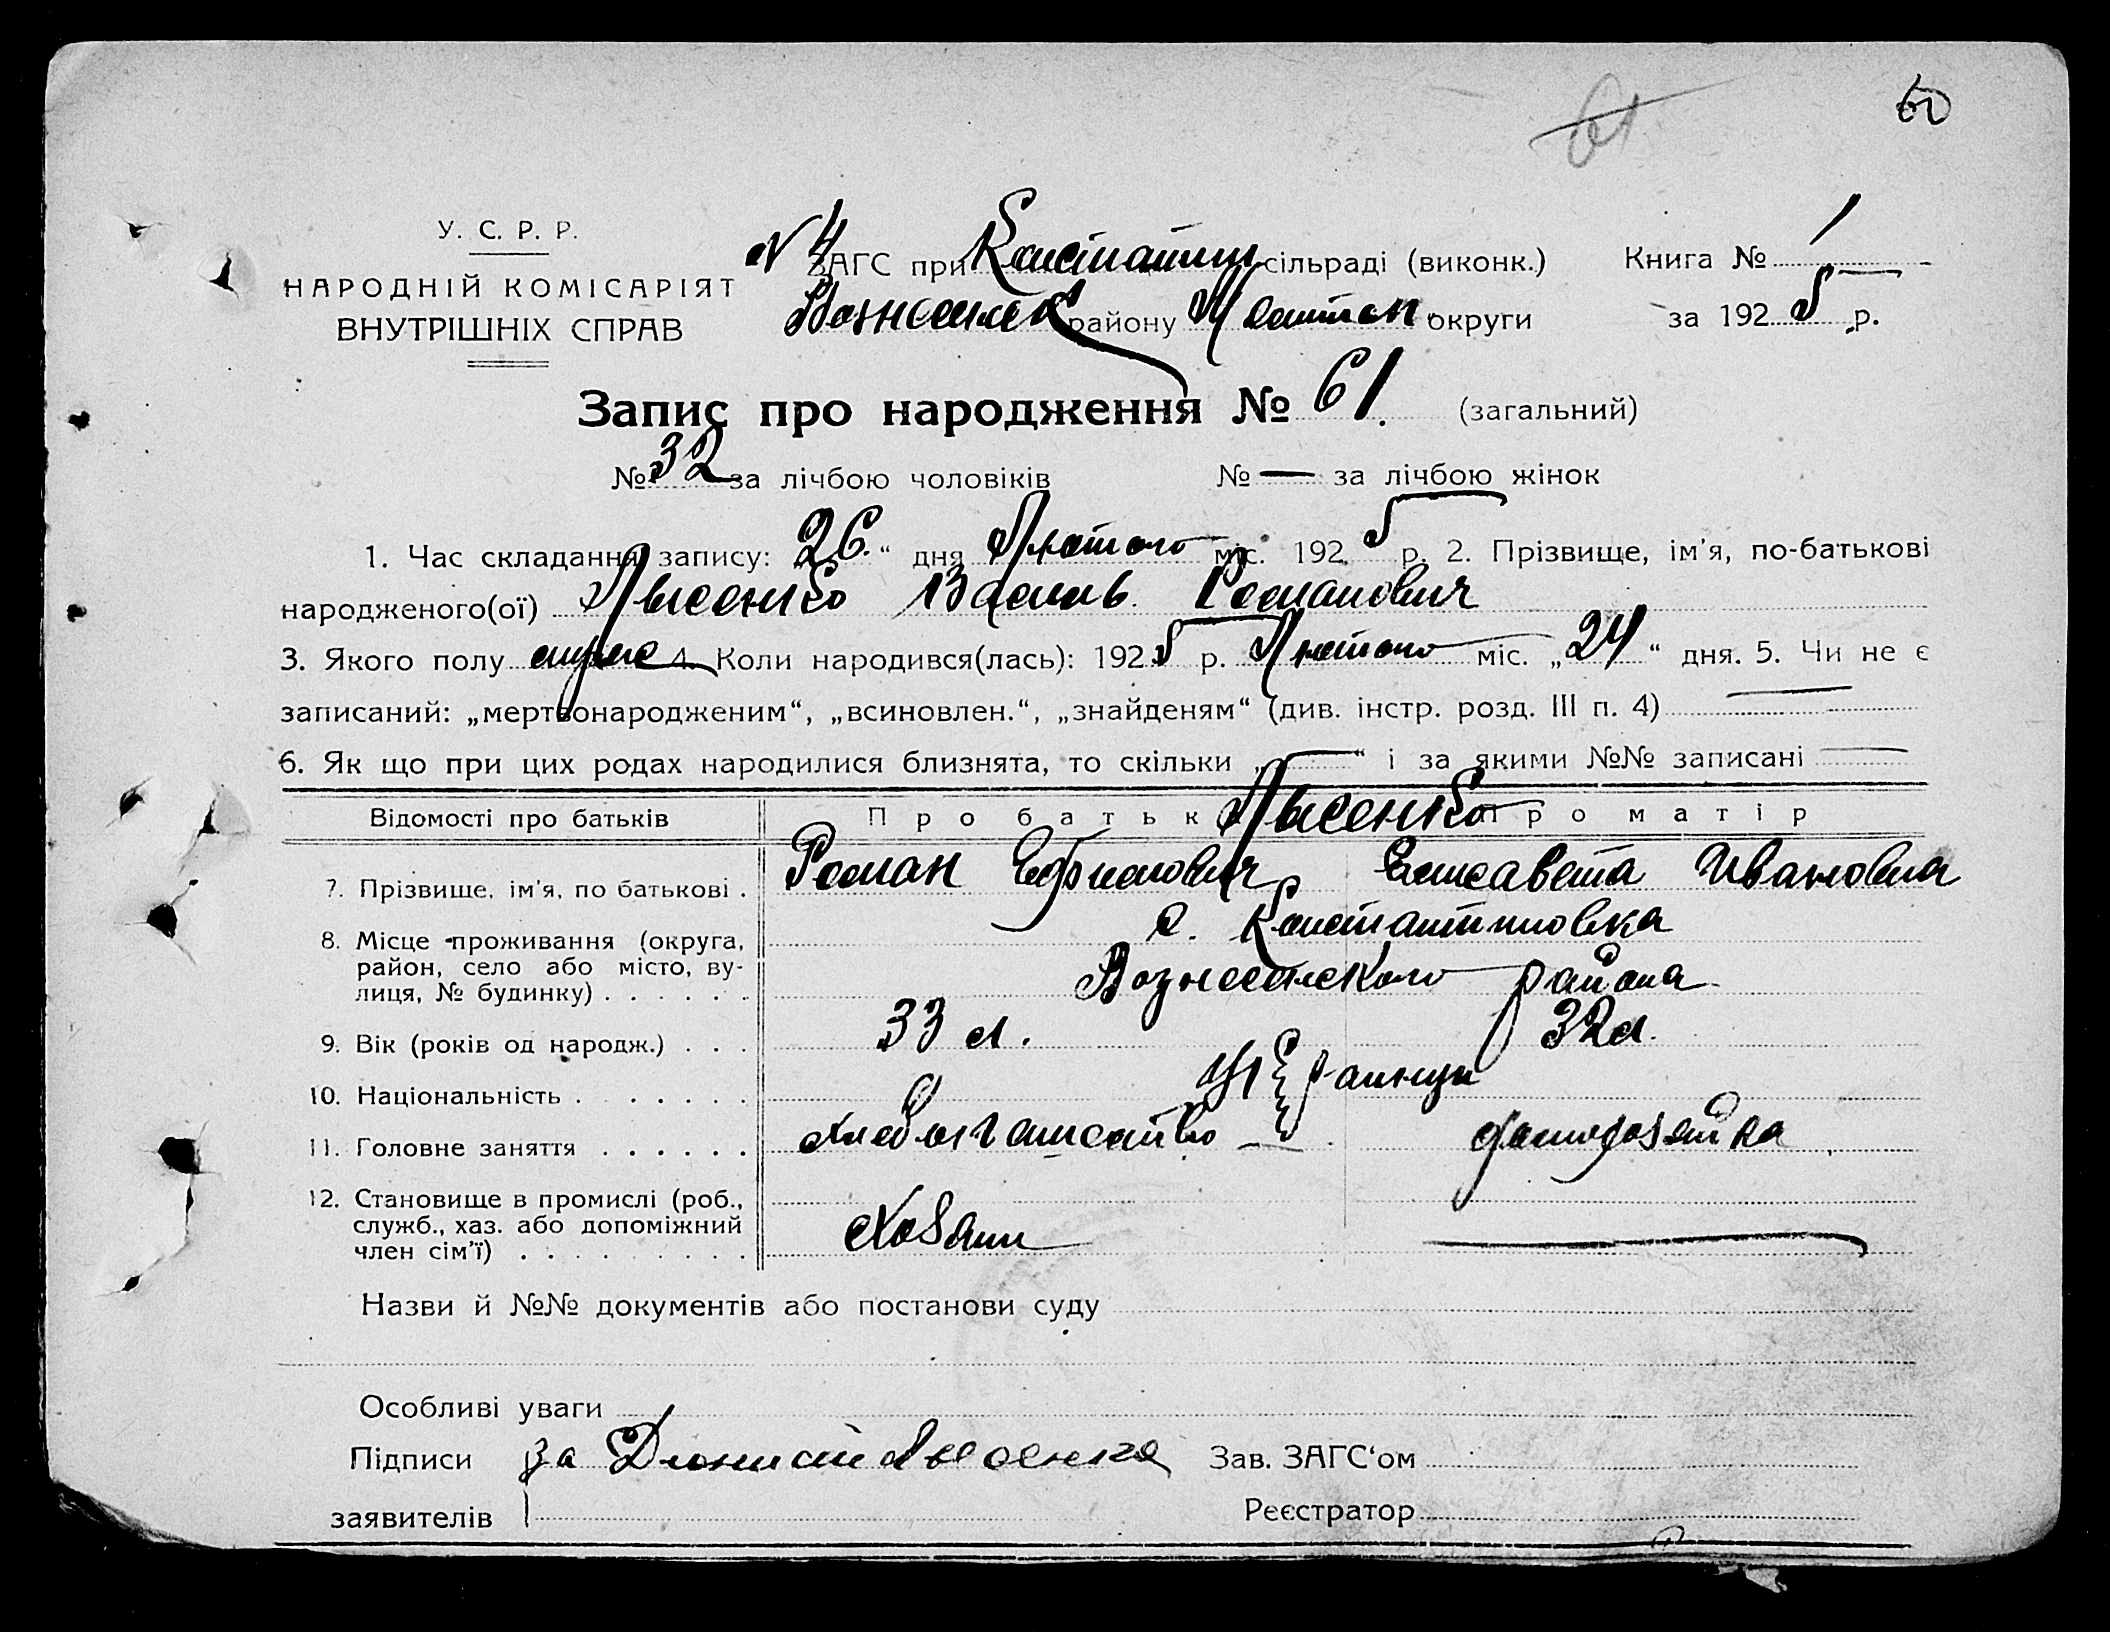 61
60
У. С. Р. Р.
НАРОДНІЙ КОМІСАРІЯТ
ВНУТРІШНІХ СПРАВ
N 4 ЗАГС при Константин сільраді (виконк.)
Книга № 1
Вознесенск району округи
за 1925 р.
Запис про народження № 61. (загальний)
№ 32 за лічбою чоловіків № — за лічбою жінок
1. Час складання запису: 26 “ дня Лютого міс. 1925 р. 2. Прізвище, ім'я, по-батькові
народженого(ої) Лысенко Василь Романович
3. Якого полу муже 4. Коли народився(лась): 1925 р. Лютого міс. „24“ дня. 5. Чи не є
записаний: „мертвонародженим“, „всиновлен.“, „знайденям“ (див. інстр. розд. III п. 4) —
6. Як що при цих родах народилися близнята, то скільки „—“ і за якими №№ записані —
Відомості про батьків Про батьк Про матір
Лысенко
7. Прізвище, ім'я, по батькові . Роман Ефимович Елисавета Ивановна
8. Місце проживання (округа, район, село або місто, ву-лиця, № будинку) . . . . . .
с. Константиновка
Вознесенского района
9. Вік (років од народж.) . . . 33 л. 32 л.
10. Національність . . . . . . . Украинцы
11. Головне заняття . . . . . . Хлебопашество — домохозяйка
12. Становище в промислі (роб., служб., хаз. або допоміжний член сім'ї) . . . . . . . . .
Хозяин —
Назви й №№ документів або постанови суду
Особливі уваги
Підписи за Лысенко Зав. ЗАГС‘ом
заявителів Реєстратор